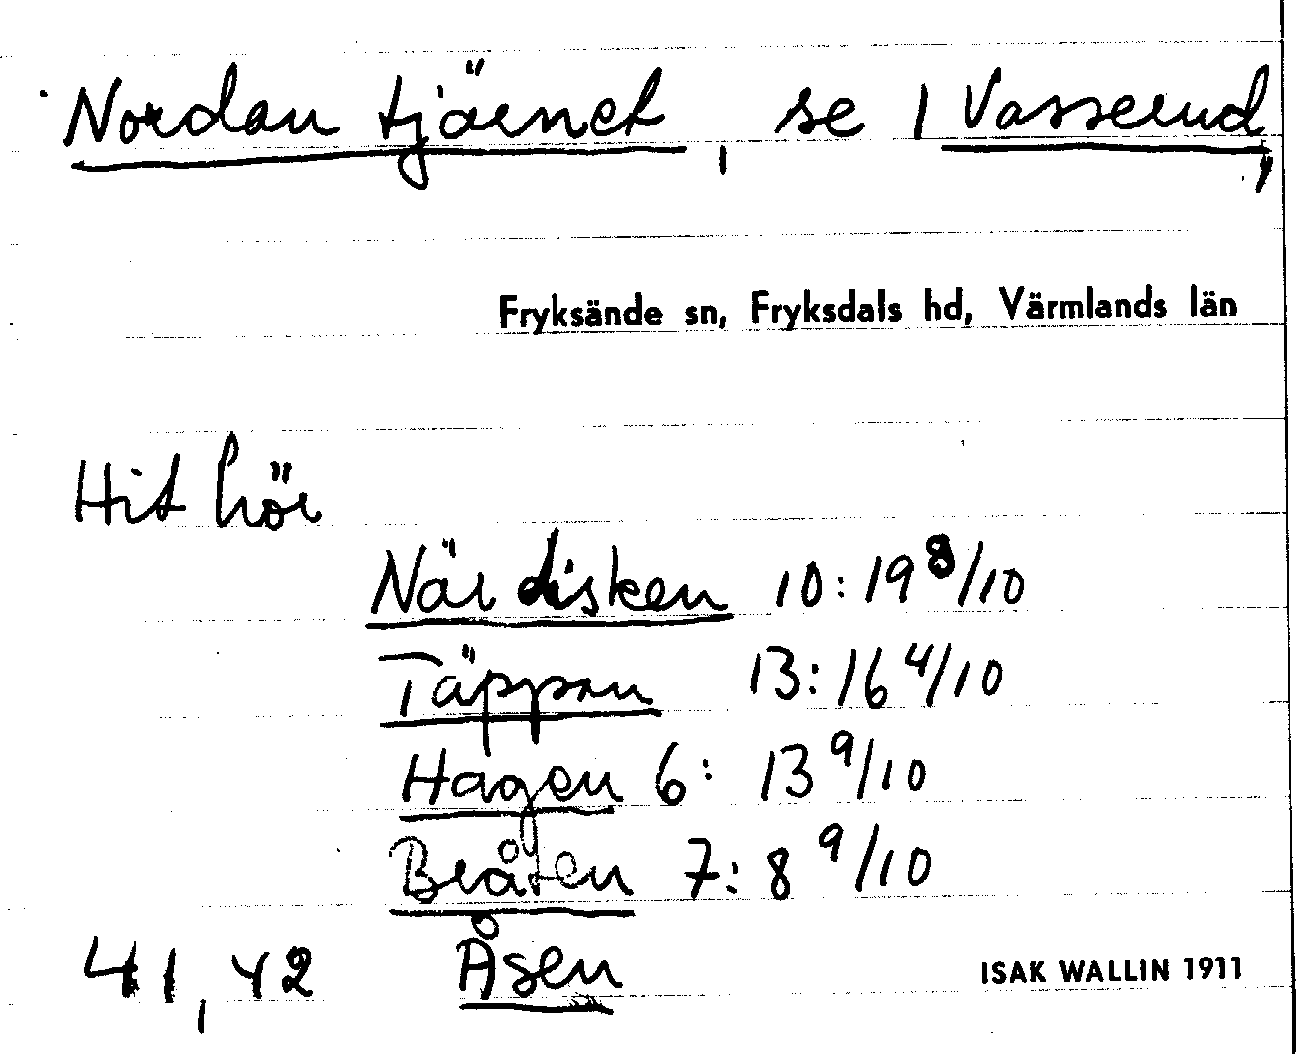 Nordan tjärnet, se 1 Vasserud,
Fryksände sn, Fryksdals hd, Värmlands län
Hit hör
När disken 10:19 8/10
Täppan 13:16 4/10
Hagen 6: 13 9/10
Bråten 7: 8 9/10
41, 42 Åsen
ISAK WALLIN 1911